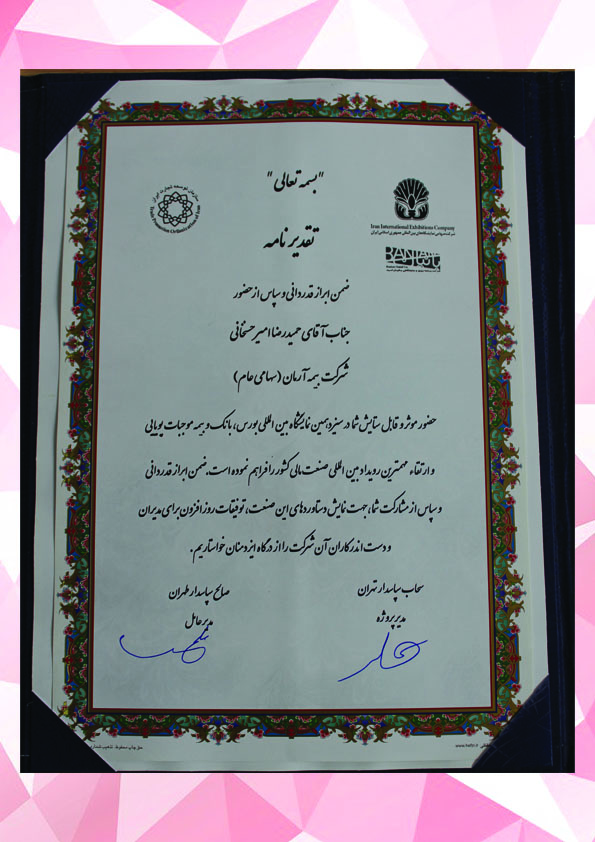 "بسمه تعالی"
سازمان توسعه تجارت ایران
Trade Promotion Organization of Iran
Iran International Exhibitions Company
شرکت سهامی نمایشگاه‌های بین المللی جمهوری اسلامی ایران
BANIAN
بانیان
تقدیرنامه
ضمن ابراز قدردانی و سپاس از حضور
جناب آقای حمیدرضا امیرحسنخانی
شرکت بیمه آرمان (سهامی عام)
حضور موثر و قابل ستایش شما در سیزدهمین نمایشگاه بین المللی بورس، بانک و بیمه موجبات پویایی
و ارتقاء مهمترین رویداد بین المللی صنعت مالی کشور را فراهم نموده است. ضمن ابراز قدردانی
و سپاس از مشارکت شما، جهت نمایش دستاوردهای این صنعت، توفیقات روزافزون برای مدیران
و دست اندرکاران آن شرکت را از درگاه ایزد منان خواستاریم.
سحاب سپاسدار تهران
مدیر پروژه
صالح سپاسدار طهران
مدیرعامل
حق چاپ محفوظ.